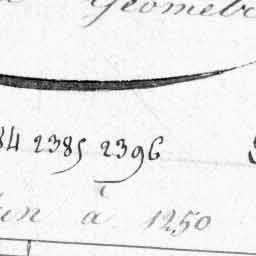 Géomet
84 2385 2396
à 1250